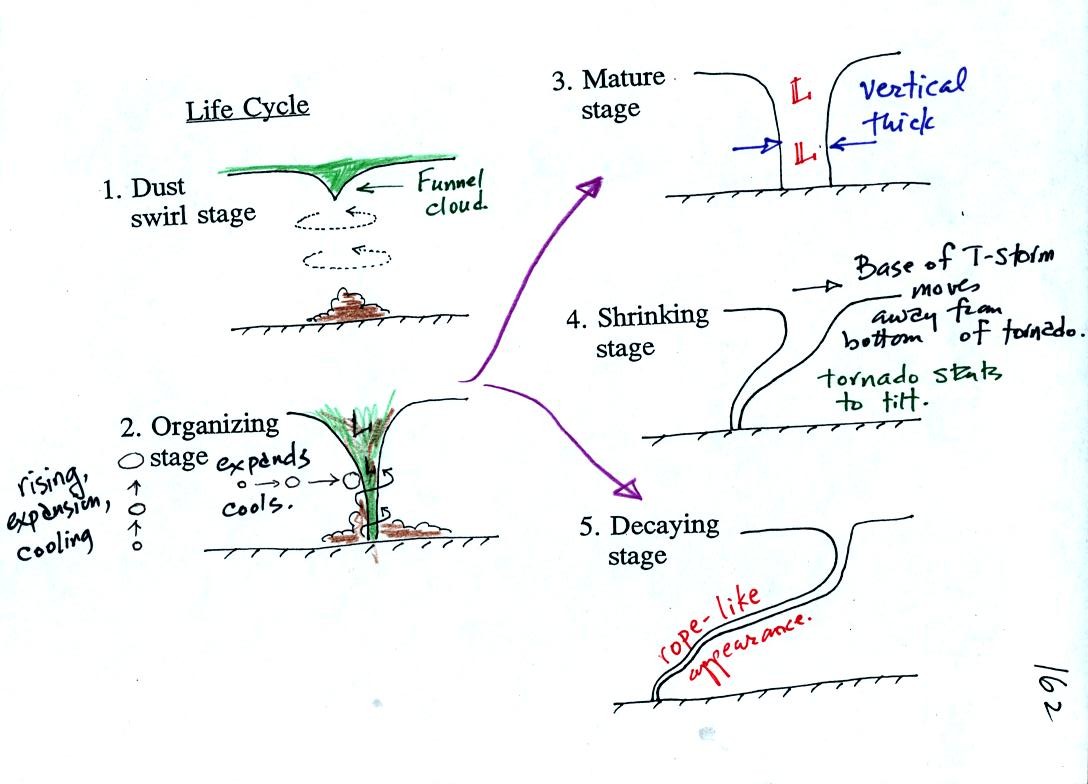 Life Cycle
1. Dust
swirl stage
Funnel
cloud.
2. Organizing
stage
rising,
expansion,
cooling
expands
cools.
L
L
3. Mature
stage
L
L
vertical
thick
4. Shrinking
stage
Base of T-storm
moves
away from
bottom of tornado.
tornado starts
to tilt.
5. Decaying
stage
rope-like
appearance.
162